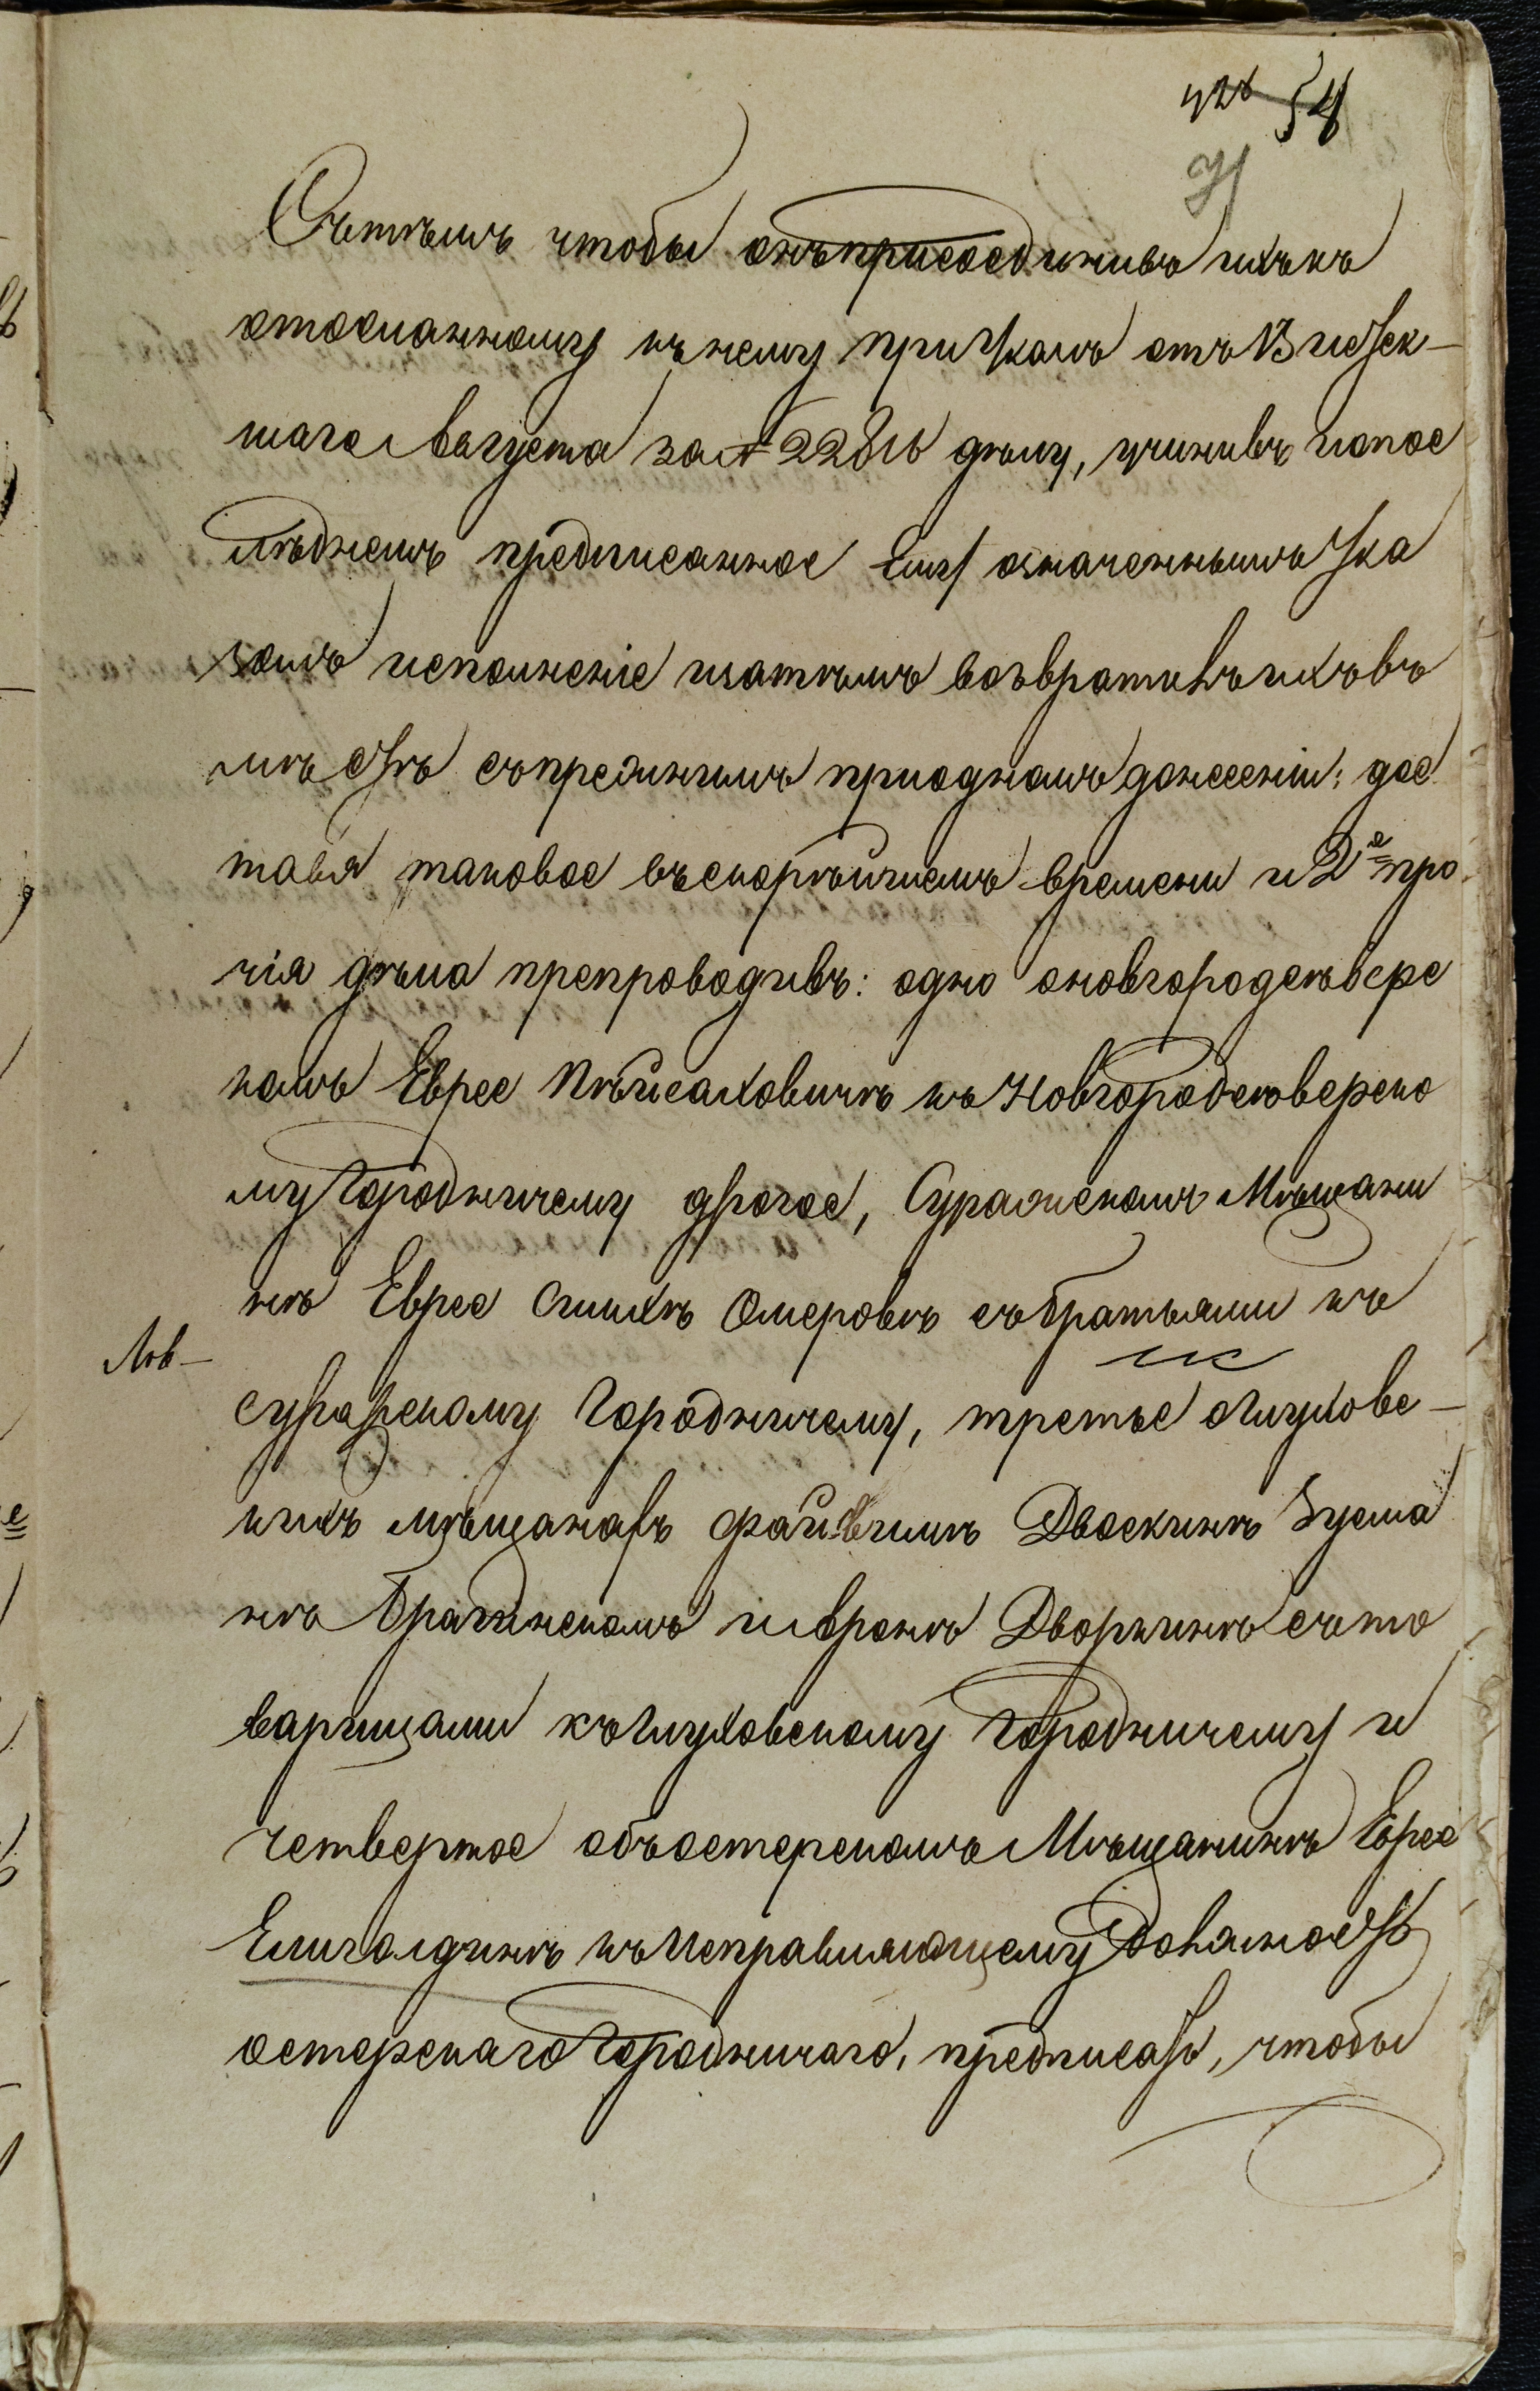 54
Сътѣмъ чтобы онъ присоединивъ ихъ къ
отосланному къ нему при Указѣ отъ 13 истек-
шаго Августа за № 22816 дѣлу, учинивъ и по пос
лѣднемъ предписанное Ему означеннымъ Ука
зомъ исполненіе и затѣмъ возвративъ ихъ въ
мѣстѣ съ прежнимъ при одномъ донесеніи; дос
тавя таковое въ скорѣйшемъ времени и 2е про
чія дѣла препроводивъ: одно о новгородсѣверс
комъ Еврее Пѣйсаховичѣ къ Новгородсѣверско
му Городничему другое, Суражскомъ Мѣщани
нѣ Еврее Симхѣ Омеровѣ съ братьями къ
Суражскому Городничему, третье о Глуховс-
кихъ мѣщанахъ Файвишѣ Двоскинѣ Зусма
нѣ Брагинскомъ и Аронѣ Дворкинѣ съ то
варищами къ Глуховскому Городничему и
четвертое объ остерскомъ Мѣщанинѣ Еврее
Елиголдинѣ къ Исправляющему Должность
остерскаго Городничаго, предписать, чтобы